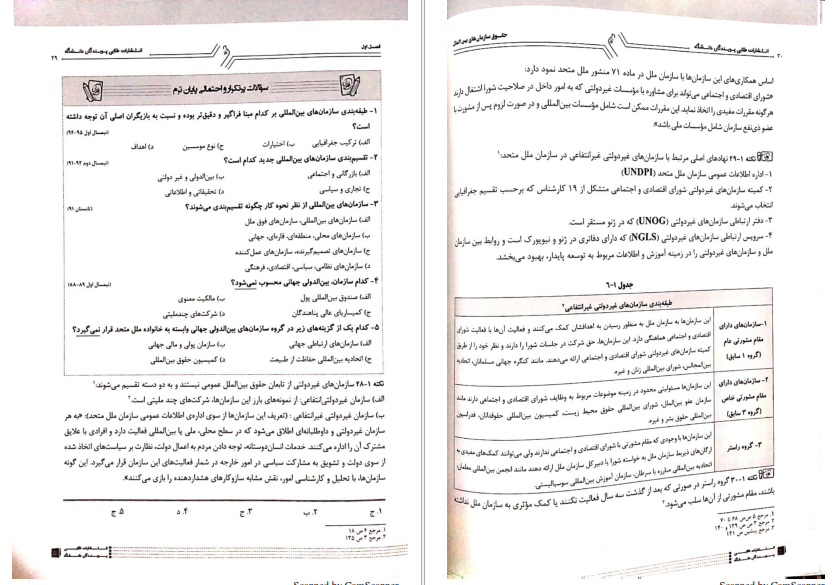 فصل اول
انتشارات طلایی پویندگان دانشگاه
۲۹
سؤالات پرتکرار و احتمالی پایان ترم
۱- طبقه‌بندی سازمان‌های بین‌المللی بر کدام مبنا فراگیر و دقیق‌تر بوده و نسبت به بازیگران اصلی آن توجه داشته
است؟ (نیمسال اول ۹۵-۹۴)
الف) ترکیب جغرافیایی ب) اختیارات ج) نوع موسسین د) اهداف
۲- تقسیم‌بندی سازمان‌های بین‌المللی جدید کدام است؟ (نیمسال دوم ۹۲-۹۱)
الف) بازرگانی و اجتماعی ب) بین‌الدولی و غیر دولتی
ج) تجاری و سیاسی د) تحقیقاتی و اطلاعاتی
۳- سازمان‌های بین‌المللی از نظر نحوه کار چگونه تقسیم‌بندی می‌شوند؟ (تابستان ۹۱)
الف) سازمان‌های بین‌المللی، سازمان‌های فوق ملل
ب) سازمان‌های محلی، منطقه‌ای، قاره‌ای، جهانی
ج) سازمان‌های تصمیم‌گیرنده، سازمان‌های عمل‌کننده
د) سازمان‌های نظامی، سیاسی، اقتصادی، فرهنگی
۴- کدام سازمان، بین‌الدولی جهانی محسوب نمی‌شود؟ (نیمسال اول ۸۹-۸۸)
الف) صندوق بین‌المللی پول ب) مالکیت معنوی
ج) کمیساریای عالی پناهندگان د) شرکت‌های چندملیتی
۵- کدام یک از گزینه‌های زیر در گروه سازمان‌های بین‌الدولی جهانی وابسته به خانواده ملل متحد قرار نمی‌گیرد؟
الف) سازمان‌های ارتباطی جهانی ب) سازمان پولی و مالی جهانی
ج) اتحادیه بین‌المللی حفاظت از طبیعت د) کمیسیون حقوق بین‌المللی
نکته ۱-۲۸ سازمان‌های غیردولتی از تابعان حقوق بین‌الملل عمومی نیستند و به دو دسته تقسیم می‌شوند:۱
الف) سازمان غیردولتی انتفاعی: از نمونه‌های بارز این سازمان‌ها، شرکت‌های چند ملیتی است.۲
ب) سازمان غیردولتی غیرانتفاعی : (تعریف این سازمان‌ها از سوی اداره‌ی اطلاعات عمومی سازمان ملل متحد): «به هر
سازمان غیردولتی و داوطلبانه‌ای اطلاق می‌شود که در سطح محلی، ملی یا بین‌المللی فعالیت دارد و افرادی با علایق
مشترک آن را اداره می‌کنند. خدمات انسان‌دوستانه، توجه دادن مردم به اعمال دولت، نظارت بر سیاست‌های اتخاذ شده
از سوی دولت و تشویق به مشارکت سیاسی در امور خارجه در شمار فعالیت‌های این سازمان قرار می‌گیرد. این گونه
سازمان‌ها، با تحلیل و کارشناسی امور، نقش مشابه سازوکارهای هشداردهنده را بازی می‌کنند».
۱. ج ۲. ب ۳. ج ۴. د ۵. ج
۱. مرجع ۶ ص ۱۸
۲. مرجع ۳ ص ۱۳۵
Scanned by CamScanner
۳۰
انتشارات طلایی پویندگان دانشگاه
حقوق سازمان‌های بین‌المللی
اساس همکاری‌های این سازمان‌ها با سازمان ملل در ماده ۷۱ منشور ملل متحد نمود دارد:
«شورای اقتصادی و اجتماعی می‌تواند برای مشاوره با مؤسسات غیردولتی که به امور داخل در صلاحیت شورا اشتغال دارند
هرگونه مقررات مفیدی را اتخاذ نماید. این مقررات ممکن است شامل مؤسسات بین‌المللی و در صورت لزوم پس از مشورت با
عضو ذی‌نفع سازمان شامل مؤسسات ملی باشد».
نکته ۱-۲۹ نهادهای اصلی مرتبط با سازمان‌های غیردولتی غیرانتفاعی در سازمان ملل متحد:۱
۱- اداره اطلاعات عمومی سازمان ملل متحد (UNDPI)
۲- کمیته سازمان‌های غیردولتی شورای اقتصادی و اجتماعی متشکل از ۱۹ کارشناس که برحسب تقسیم جغرافیایی
انتخاب می‌شوند.
۳- دفتر ارتباطی سازمان‌های غیردولتی (UNOG) که در ژنو مستقر است.
۴- سرویس ارتباطی سازمان‌های غیردولتی (NGLS) که دارای دفاتری در ژنو و نیویورک است و روابط بین سازمان
ملل و سازمان‌های غیردولتی را در زمینه آموزش و اطلاعات مربوط به توسعه پایدار، بهبود می‌بخشد.
جدول ۱-۶
طبقه‌بندی سازمان‌های غیردولتی غیرانتفاعی۲
۱-سازمان‌های دارای
مقام مشورتی عام
(گروه ۱ سابق)
این سازمان‌ها به سازمان ملل به منظور رسیدن به اهدافشان کمک می‌کنند و فعالیت آن‌ها با فعالیت شورای
اقتصادی و اجتماعی هماهنگی دارد. این سازمان‌ها، حق شرکت در جلسات شورا را دارند و نظر خود را از طریق
کمیته سازمان‌های غیردولتی شورای اقتصادی و اجتماعی ارائه می‌دهند. مانند کنگره جهانی مسلمانان، اتحادیه
بین‌المجالس، شورای بین‌المللی زنان و غیره.
۲- سازمان‌های دارای
مقام مشورتی خاص
(گروه ۲ سابق)
این سازمان‌ها مسئولیتی محدود در زمینه موضوعات مربوط به وظایف شورای اقتصادی و اجتماعی دارند مانند
سازمان عفو بین‌الملل، شورای بین‌المللی حقوق محیط زیست، کمیسیون بین‌المللی حقوقدانان، فدراسیون
بین‌المللی حقوق بشر و غیره.
۳- گروه راستر
این سازمان‌ها با وجودی که مقام مشورتی با شورای اقتصادی و اجتماعی ندارند ولی می‌توانند کمک‌های مفیدی به
ارگان‌های ذیربط سازمان ملل به خواسته شورا یا دبیرکل سازمان ملل ارائه دهند مانند انجمن بین‌المللی معلمان،
اتحادیه بین‌المللی مبارزه با سرطان، سازمان آموزش بین‌المللی سوسیالیستی.
نکته ۱-۳۰ گروه راستر در صورتی که بعد از گذشت سه سال فعالیت نکنند یا کمک مؤثری به سازمان ملل نداشته
باشند، مقام مشورتی از آن‌ها سلب می‌شود.۳
۱. مرجع ۵ ص ۶۸ تا ۷۰
۲. مرجع ۳ ص ۱۳۹ و ۱۴۰
۳. مرجع پیشین ص ۱۴۱
Scanned by CamScanner